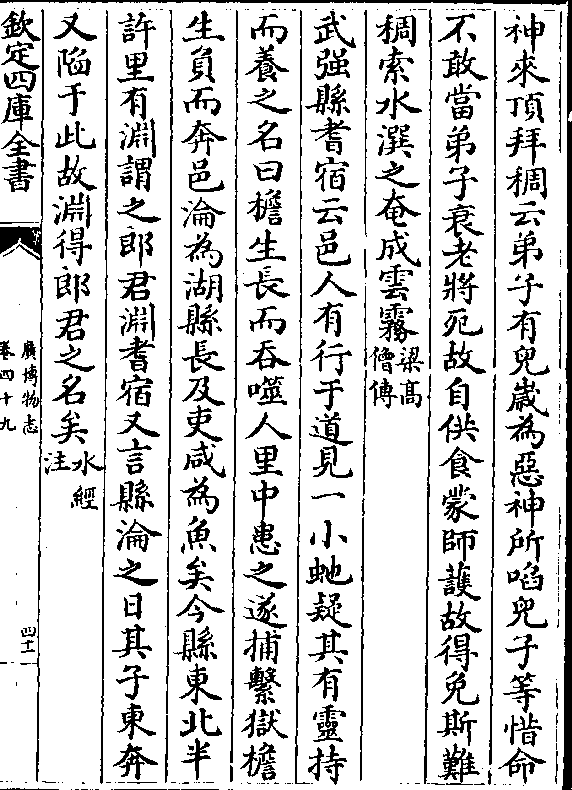 神來頂拜稠云弟子有兒嵗為惡神所啗兒子等惜命
不敢當弟子衰老將死故自供食蒙師䕶故得免斯難
稠索水潠之奄成雲霧梁髙
僧傳
武强縣耆宿云邑人有行于道見一小虵疑其有靈持
而養之名曰檐生長而吞噬人里中患之遂捕繫獄檐
生負而奔邑淪為湖縣長及吏咸為魚矣今縣東北半
許里有淵謂之郎君淵耆宿又言縣淪之日其子東奔
又陷于此故淵得郎君之名矣水經
注
欽定四庫全書
廣博物志
卷四十九